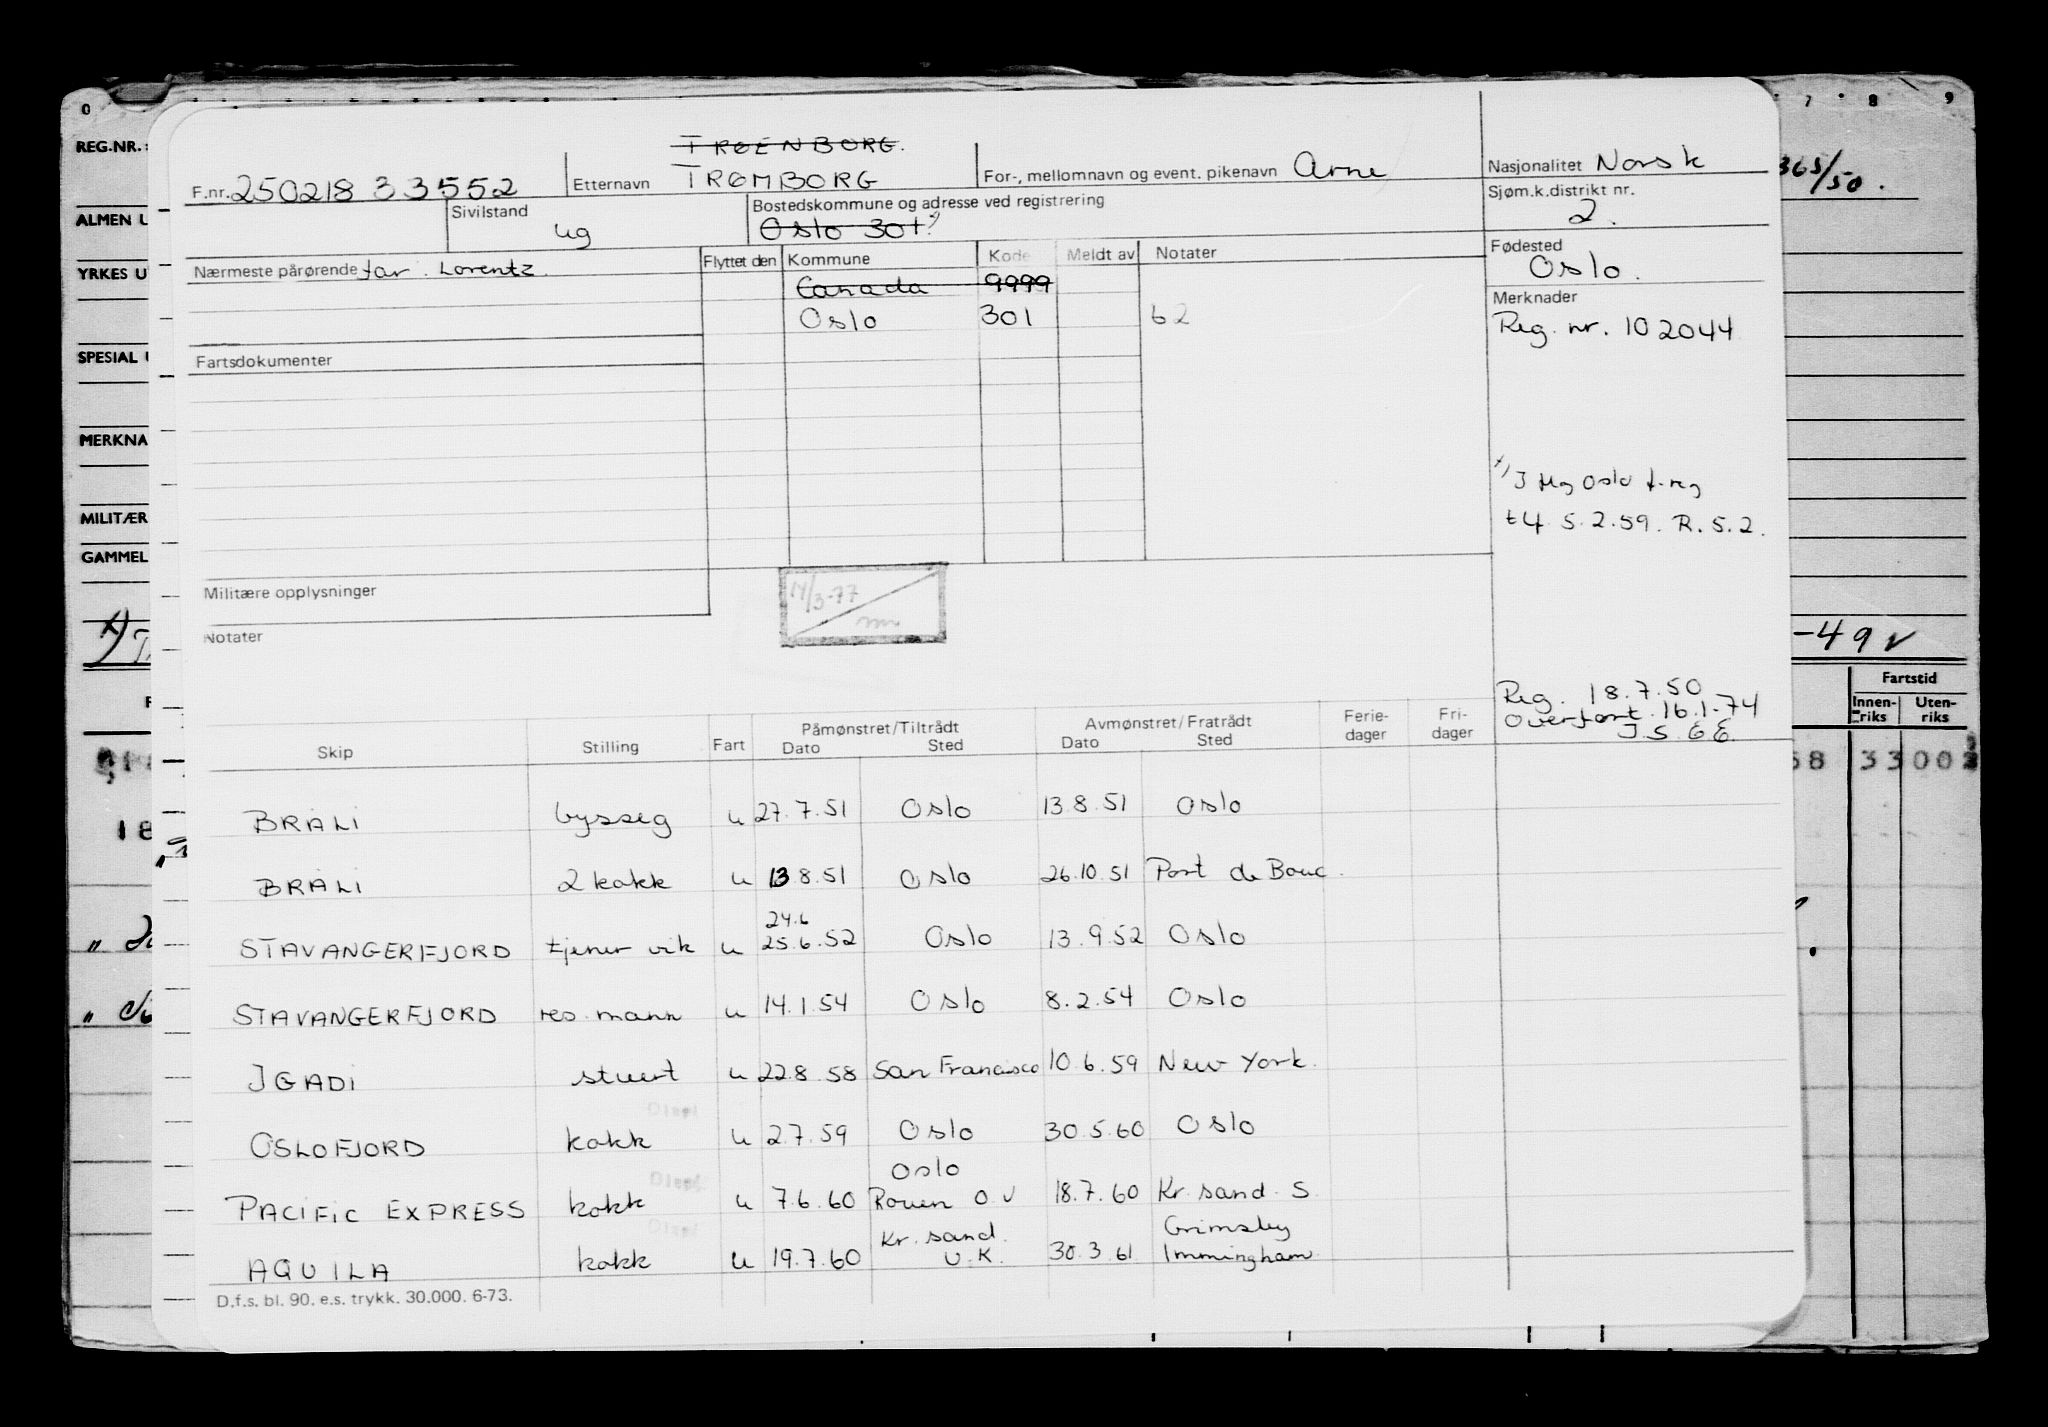 0 7 8 9
REG.NR.: 365/50.
TRØENBORG.
F.nr. 250218 33552 Etternavn TRØMBORG For-, mellomnavn og event. pikenavn Arne Nasjonalitet Norsk
ALMEN U
Sivilstand ug Bostedskommune og adresse ved registrering Sjøm.k.distrikt nr. 2.
Oslo 301
YRKES U
Nærmeste pårørende far. Lorentz Flyttet den Kommune Kode Meldt av Notater Fødested
Oslo.
Canada 9999 Merknader
Oslo 301 62 Reg. nr. 102044
SPESIAL
Fartsdokumenter
MERKNA
x) I flg Oslo f.reg
t4 5.2.59. R.5.2.
MILITÆR
GAMMEL
Militære opplysninger 14/3-77
Notater
x) -49 v
Reg. 18.7.50
Overført 16.1-74
J.S. GE.
Fartstid
Innen-riks Uten-riks
Skip Stilling Fart Påmønstret/Tiltrådt Dato Sted Avmønstret/Fratrådt Dato Sted Ferie-dager Fri-dager
68 33 00
BRALI bysseg u 27.7.51 Oslo 13.8.51 Oslo
18
BRALI 2 kokk u 13 8.51 Oslo 26.10.51 Port de Bouc.
24.6
STAVANGERFJORD tjener vik u 25.6.52 Oslo 13.9.52 Oslo
STAVANGERFJORD res. mann u 14.1.54 Oslo 8.2.54 Oslo
IGADI stuert u 22.8.58 San Francisco 10.6.59 New York.
OSLOFJORD kokk u 2.7.59 Oslo 30.5.60 Oslo
Oslo
PACIFIC EXPRESS kokk u 7.6.60 Rouen O.V 18.7.60 Kr.sand. S
Kr.sand. Grimsby
AQUILA kokk u 19.7.60 U.K. 30.3.61 Immingham.
D.f.s. bl. 90. e.s. trykk. 30.000. 6-73.